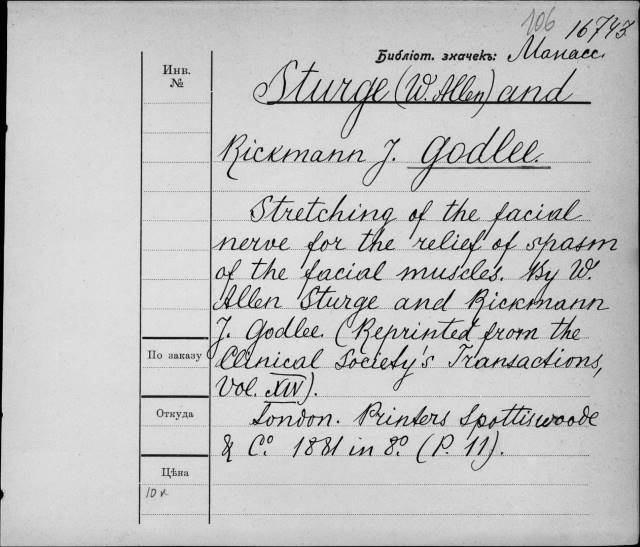 106 16743
Библіот. значекъ: Манасс.
Инв.
№
Sturge (W. Allen) and
Rickmann J. Godlee.
Stretching of the facial
nerve for the relief of spasm
of the facial muscles. By W.
Allen Sturge and Rickmann
J. Godlee. (Reprinted from the
Clinical Society's Transactions,
Vol. XIV).
London. Printers Spottiswoode
& Cº. 1881 in 8º. (P. 11).
По заказу
Откуда
Цѣна
10 к